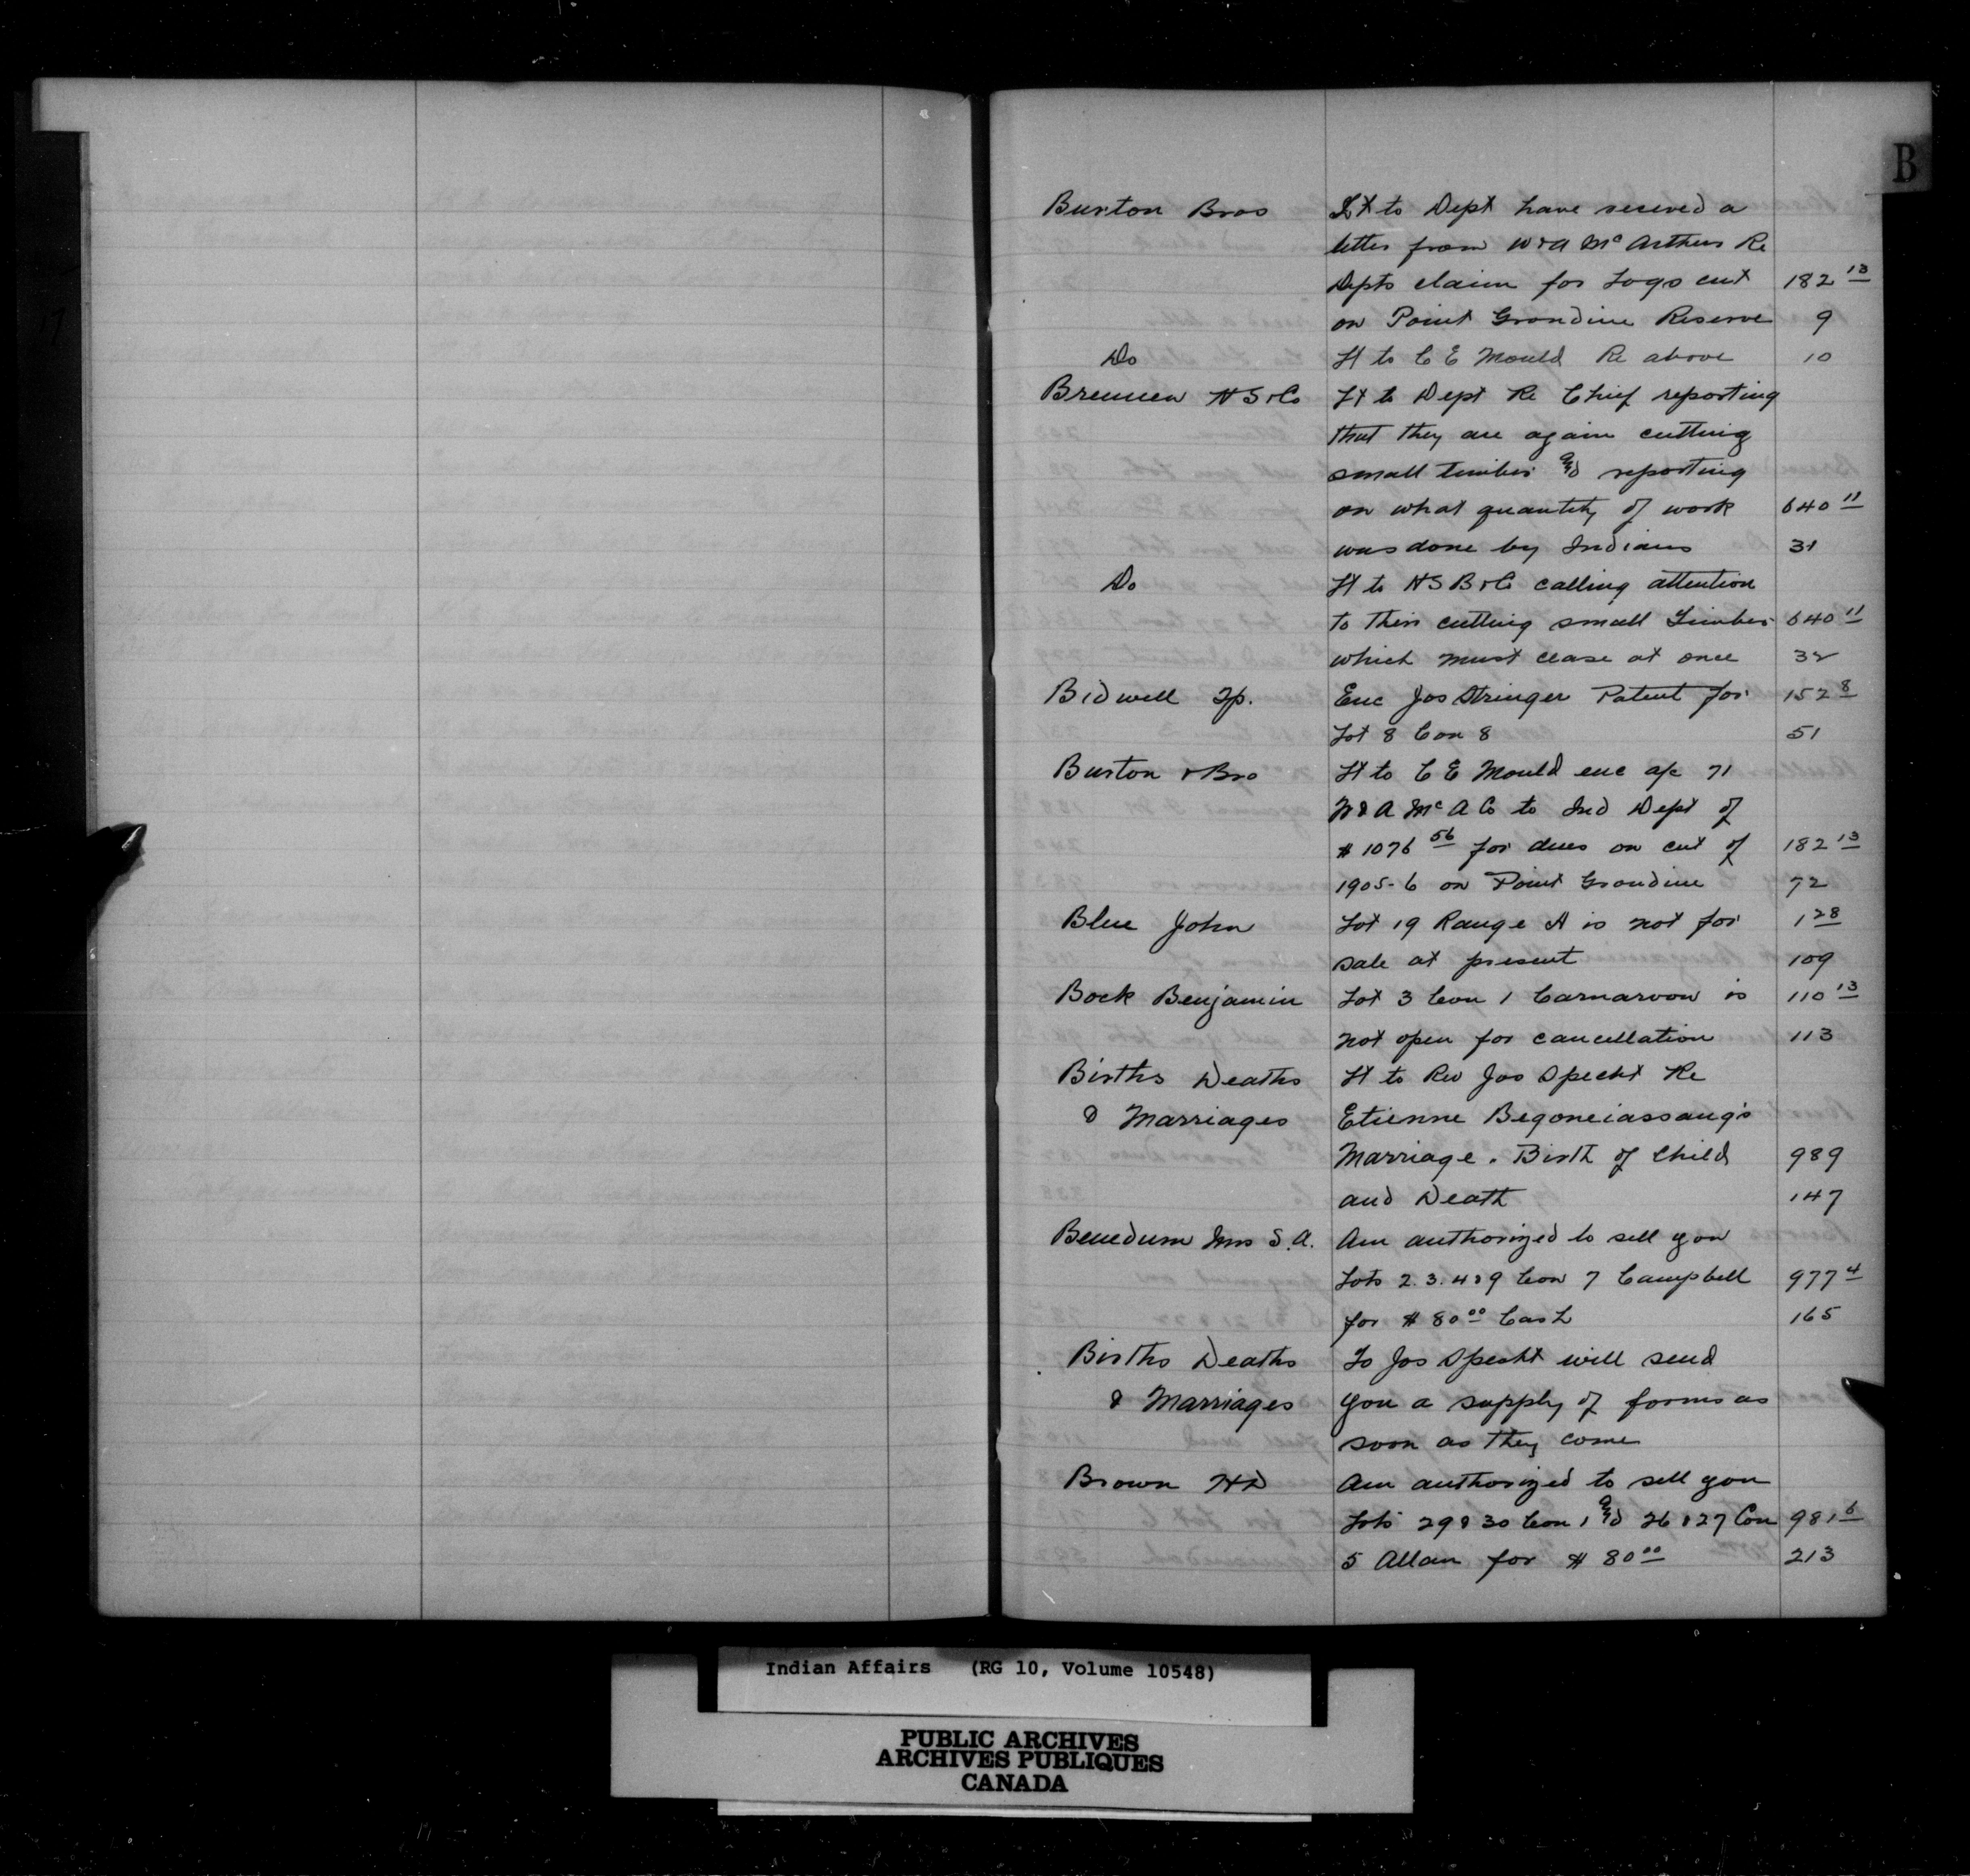 B
Burton Bros Lt to Dept have received a
letter from W & A McArthur Re
Depts claim for Logs cut 182 13
on Point Grondine Reserve 9
Do Lt to C E Mould Re above 10
Brennen H S & Co Lt to Dept Re Chief reporting
that they are again cutting
small timber and reporting
on what quantity of work 640 11
was done by Indians 31
Do Lt to H S B & Co calling attention
to their cutting small Timber 640 11
which must cease at once 32
Bidwell Tp. Enc Jos Stringer Patent for 152 8
Lot 8 Con 8 51
Burton & Bro Lt to C E Mould enc a/c 71
W & A McA Co to Ind Dept of
$1076 56 for dues on cut of 182 13
1905-6 on Point Grondine 72
Blue John Lot 19 Range A is not for 1 28
sale at present 109
Bock Benjamin Lot 3 Con 1 Carnarvon is 110 13
not open for cancellation 113
Births Deaths Lt to Rev Jos Specht Re
& Marriages Etienne Begoneiassaug's
Marriage. Birth of Child 989
and Death 147
Benedum Mrs S.A. Am authorized to sell you
Lots 2.3.4 & 9 Con 7 Campbell 977 4
for $80 00 Cash 165
Births Deaths To Jos Specht will send
& Marriages you a supply of forms as
soon as they come
Brown H D Am authorized to sell you
Lots 29 & 30 Con 1 and 26 & 27 Con 981 6
5 Allan for $80 00 213
Indian Affairs (RG 10, Volume 10548)
PUBLIC ARCHIVES
ARCHIVES PUBLIQUES
CANADA